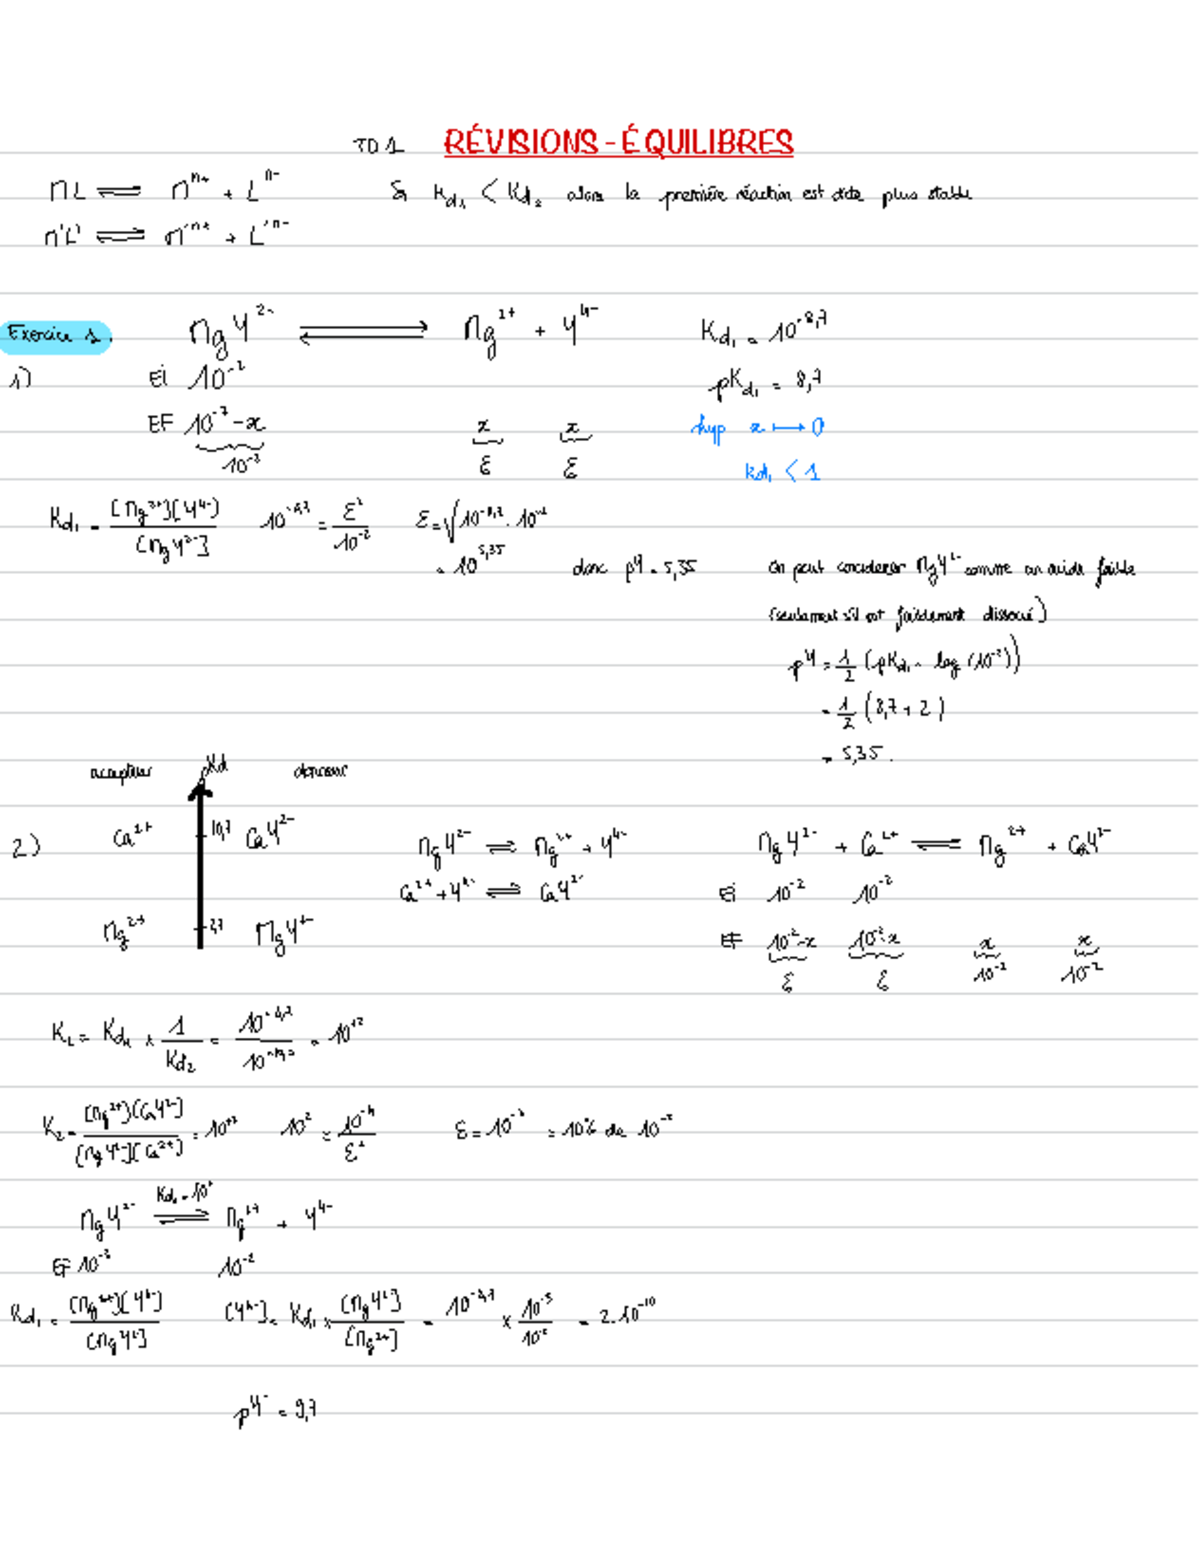 TD 1 RÉVISIONS - ÉQUILIBRES
ML ⇌ Mⁿ⁺ + Lⁿ⁻ Si Kd₁ < Kd₂ alors la première réaction est dite plus stable
M'L' ⇌ M'ⁿ⁺ + L'ⁿ⁻
Exercice 1. MgY²⁻ ⇌ Mg²⁺ + Y⁴⁻ Kd₁ = 10⁻⁸,⁷
1) Ei 10⁻² pKd₁ = 8,7
EF 10⁻² - x x x hyp x ↦ 0
10⁻² ε ε Kd₁ < 1
Kd₁ = [Mg²⁺][Y⁴⁻] / [MgY²⁻] 10⁻⁸,⁷ = ε² / 10⁻² ε = √10⁻⁸,⁷ . 10⁻²
= 10⁵,³⁵ donc pY = 5,35 On peut considérer MgY²⁻ comme un acide faible
(seulement s'il est faiblement dissocié)
pY = 1/2 (pKd₁ - log (10⁻²))
= 1/2 (8,7 + 2)
= 5,35.
accepteur pKd donneur
2) Ca²⁺ 10,7 CaY²⁻ MgY²⁻ ⇌ Mg²⁺ + Y⁴⁻ MgY²⁻ + Ca²⁺ ⇌ Mg²⁺ + CaY²⁻
Ca²⁺ + Y⁴⁻ ⇌ CaY²⁻ Ei 10⁻² 10⁻²
Mg²⁺ 8,7 MgY²⁻ EF 10⁻²-x 10⁻²-x x x
ε ε 10⁻² 10⁻²
K₂ = Kd₁ × 1 / Kd₂ = 10⁻⁸,⁷ / 10⁻¹⁰,⁷ = 10⁺²
K₂ = [Mg²⁺][CaY²⁻] / [MgY²⁻][Ca²⁺] = 10⁺² 10² = 10⁻⁴ / ε² ε = 10⁻³ = 10% de 10⁻²
MgY²⁻ ⇌ Mg²⁺ + Y⁴⁻
EF 10⁻³ 10⁻²
Kd₁ = [Mg²⁺][Y⁴⁻] / [MgY²⁻] [Y⁴⁻] = Kd₁ × [MgY²⁻] / [Mg²⁺] = 10⁻⁸,⁷ × 10⁻³ / 10⁻² = 2.10⁻¹⁰
pY⁻ = 9,7